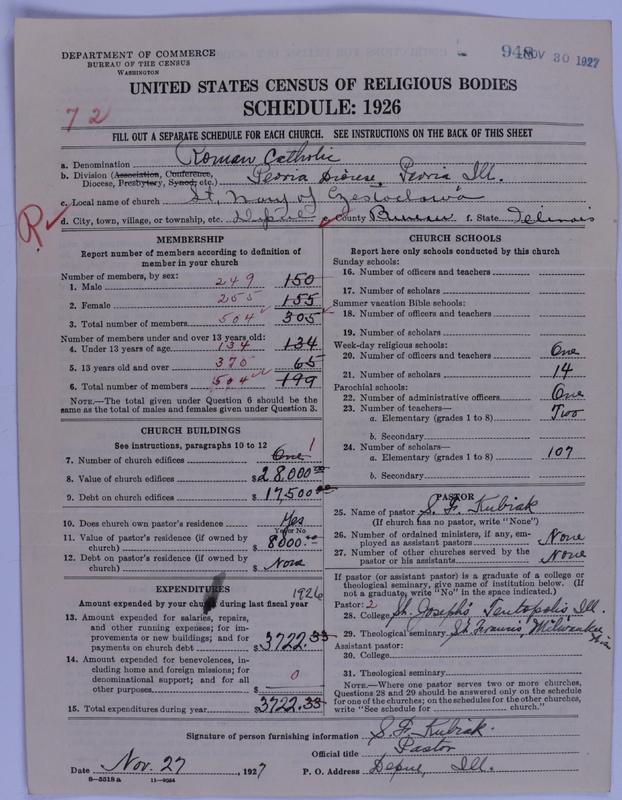 DEPARTMENT OF COMMERCE
BUREAU OF THE CENSUS
WASHINGTON
948 NOV 30 1927
UNITED STATES CENSUS OF RELIGIOUS BODIES
SCHEDULE: 1926
72
FILL OUT A SEPARATE SCHEDULE FOR EACH CHURCH. SEE INSTRUCTIONS ON THE BACK OF THIS SHEET
a. Denomination Roman Catholic
b. Division (Association, Conference, Diocese, Presbytery, Synod, etc.) Peoria Diocese, Peoria Ill.
c. Local name of church St. Mary of Czestochowa
R
d. City, town, village, or township, etc. Depue e. County Bureau f. State Illinois
MEMBERSHIP
Report number of members according to definition of
member in your church
Number of members, by sex:
1. Male 249 150
2. Female 255 155
3. Total number of members 504 305
Number of members under and over 13 years old:
4. Under 13 years of age 134 134
5. 13 years old and over 370 65
6. Total number of members 504 199
NOTE.—The total given under Question 6 should be
same as the total of males and females given under Question 3.
CHURCH BUILDINGS
See instructions, paragraphs 10 to 12
7. Number of church edifices One 1
8. Value of church edifices $ 28,000 00
9. Debt on church edifices $ 17,500 00
10. Does church own pastor's residence Yes
Yes or No
11. Value of pastor's residence (if owned by
church) $ 8000.00
12. Debt on pastor's residence (if owned by
church) $ None
EXPENDITURES 1926
Amount expended by your church during last fiscal year
13. Amount expended for salaries, repairs,
and other running expenses; for im-
provements or new buildings; and for
payments on church debt $ 3722.33
14. Amount expended for benevolences, in-
cluding home and foreign missions; for
denominational support; and for all
other purposes $ 0
15. Total expenditures during year $ 3722.33
CHURCH SCHOOLS
Report here only schools conducted by this church
Sunday schools:
16. Number of officers and teachers
17. Number of scholars
Summer vacation Bible schools:
18. Number of officers and teachers
19. Number of scholars
Week-day religious schools:
20. Number of officers and teachers One
21. Number of scholars 14
Parochial schools:
22. Number of administrative officers One
23. Number of teachers—
a. Elementary (grades 1 to 8) Two
b. Secondary
24. Number of scholars—
a. Elementary (grades 1 to 8) 107
b. Secondary
PASTOR
25. Name of pastor S. F. Kubiak
(If church has no pastor, write "None")
26. Number of ordained ministers, if any, em-
ployed as assistant pastors None
27. Number of other churches served by the
pastor or his assistants None
If pastor (or assistant pastor) is a graduate of a college or
theological seminary, give name of institution below. (If
not a graduate, write "No" in the space indicated.)
Pastor: 2
28. College St. Joseph's Teutopolis Ill.
29. Theological seminary St. Francis, Milwaukee Wis
Assistant pastor:
30. College
31. Theological seminary
NOTE.—Where one pastor serves two or more churches,
Questions 28 and 29 should be answered only on the schedule
for one of the churches; on the schedules for the other churches,
write "See schedule for church."
Signature of person furnishing information S. F. Kubiak.
Official title Pastor
Date Nov. 27, 1927 P. O. Address Depue, Ill.
8—5518a 11—9084